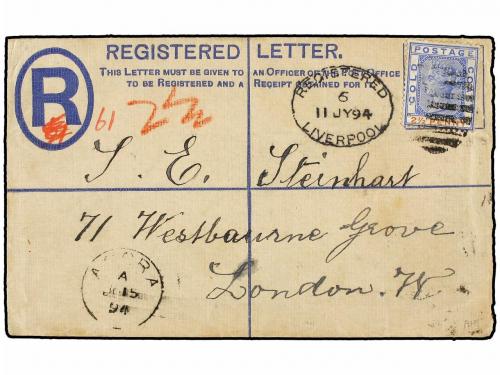 REGISTERED LETTER.
THIS LETTER MUST BE GIVEN TO AN OFFICER OF THE POST OFFICE
TO BE REGISTERED AND A RECEIPT OBTAINED FOR IT.
R
61
2½
REGISTERED
6
11 JY 94
LIVERPOOL
POSTAGE
GOLD
2½ PENNY
S. E. Steinhart
71 Westbourne Grove
London. W.
ACCRA
A
JU 15
94